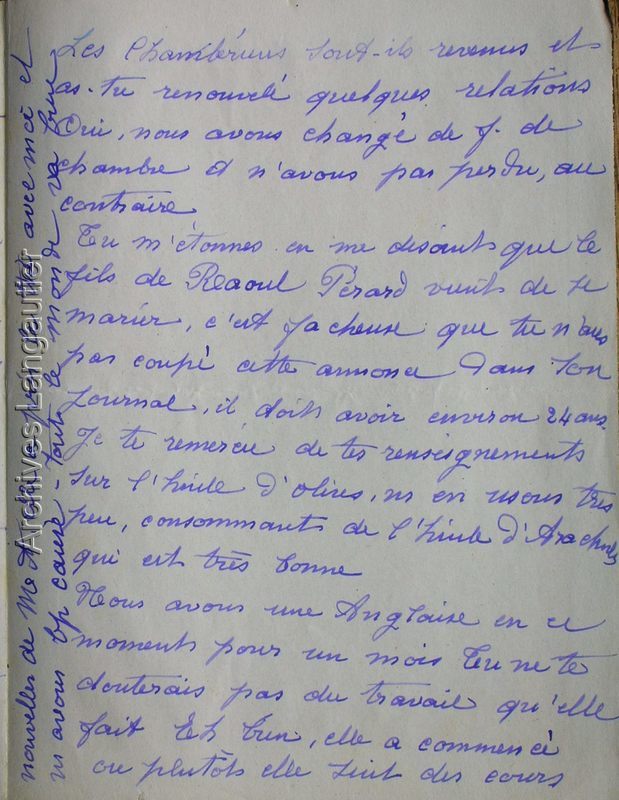 Les Chambériens sont-ils revenus et
as-tu renouvelé quelques relations
Oui, nous avons changé de f. de
chambre et n'avons pas perdu, au
contraire
Tu m'étonnes en me disants que le
fils de Raoul Pérard vients de se
marier, c'est facheuse que tu n'aies
pas coupé cette annonce dans ton
journal, il doits avoir environ 24 ans.
Je te remercie de tes renseignements
sur l'huile d'olives, ns en usons très
peu, consommants de l'huile d'Arachides
qui est très bonne
Nous avons une Anglaise en ce
moments pour un mois Tu ne te
douterais pas du travail qu'elle
fait Eh bien, elle a commencé
ou plutôts elle suit des cours
nouvelles de Me avec moi et
ns avons bp causé - Tout le monde va bien
Archives Langautier